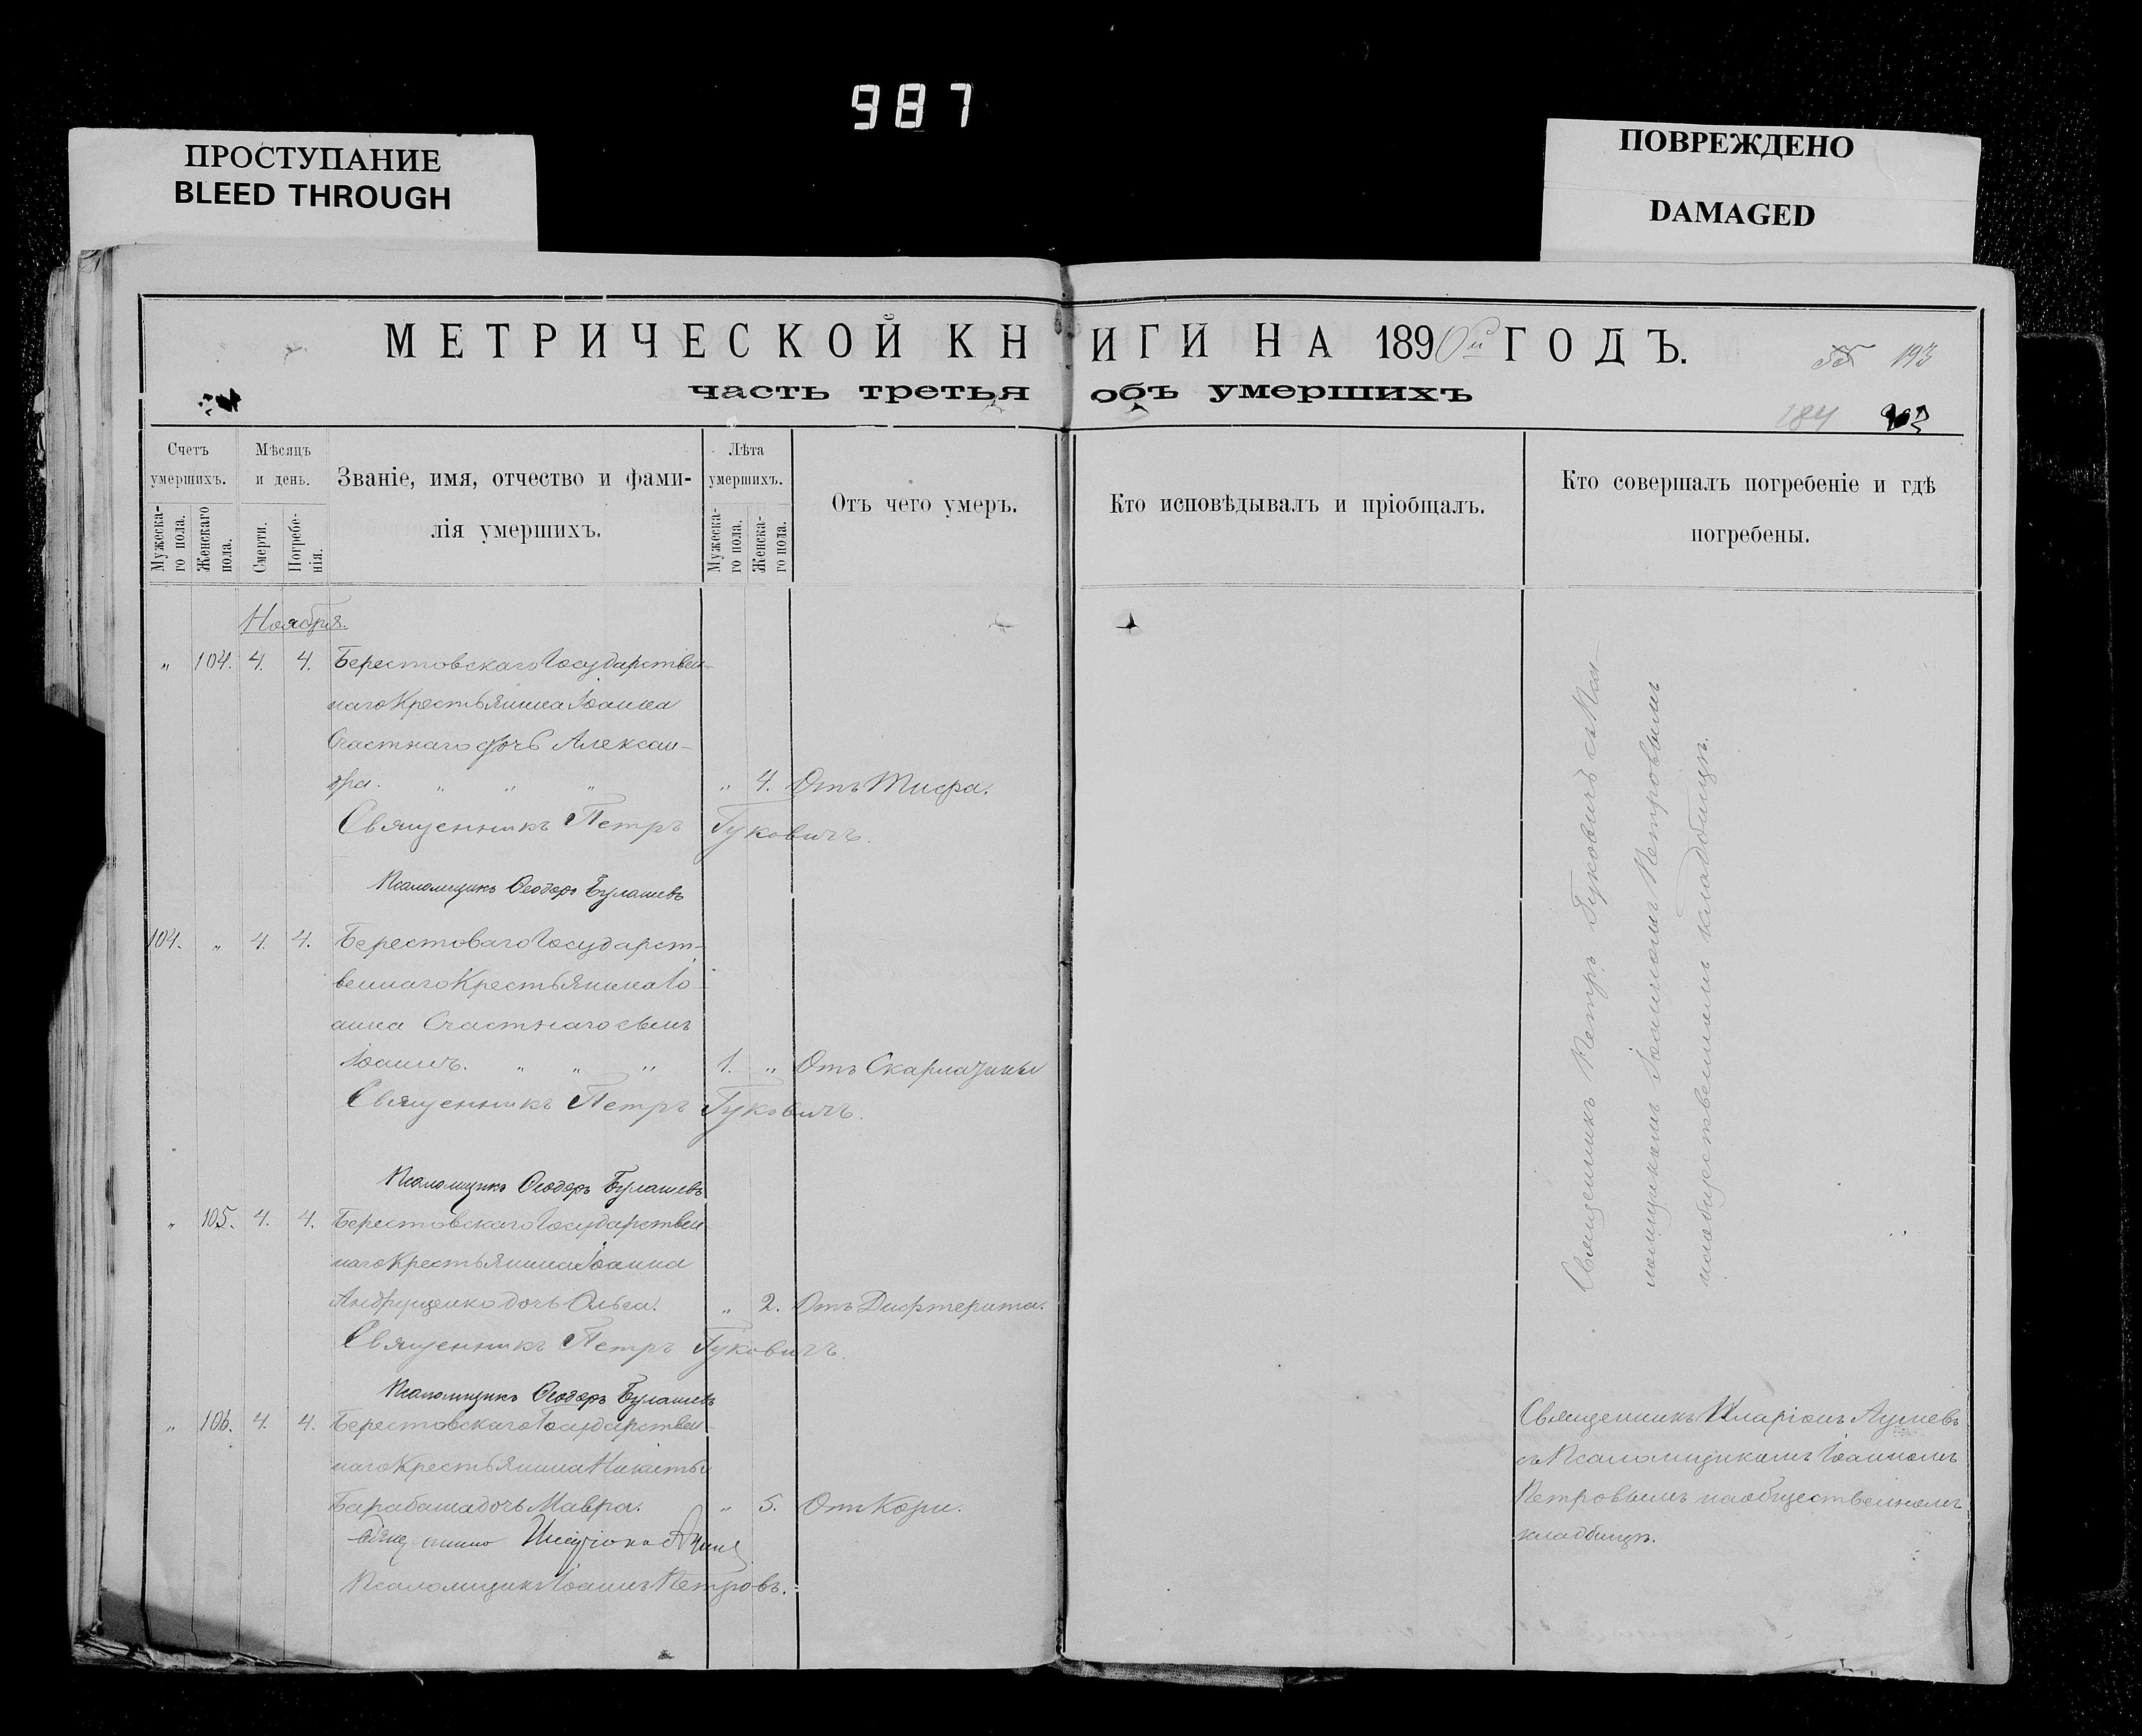 987
ПРОСТУПАНИЕ
BLEED THROUGH
ПОВРЕЖДЕНО
DAMAGED
МЕТРИЧЕСКОЙ КНИГИ НА 1890й ГОДЪ.
193
часть третья объ умершихъ
184
Счетъ умершихъ.
Мужеска-го пола.
Женскаго пола.
Мѣсяцъ и день.
Смерти.
Погребе-нія.
Званіе, имя, отчество и фами-
лія умершихъ.
Лѣта умершихъ.
Мужеска-го пола.
Женска-го пола.
Отъ чего умеръ.
Кто исповѣдывалъ и пріобщалъ.
Кто совершалъ погребеніе и гдѣ
погребены.
Ноября.
" 104. 4. 4. Берестовскаго Государствен-
наго Крестьянина Іоанна
Счастнаго дочь Алексан-
дра. " " " " 4. Отъ Тифа.
Священникъ Петръ Гуковичъ.
Псаломщикъ Ѳеодоръ Булашевъ
104. " 4. 4. Берестоваго Государст-
веннаго Крестьянина Іо-
анна Счастнаго сынъ
Іоаннъ. " " " 1. " Отъ Скарлатины
Священникъ Петръ Гуковичъ.
Псаломщикъ Ѳеодоръ Булашевъ
" 105. 4. 4. Берестовскаго Государствен-
наго Крестьянина Іоанна
Андрущенко дочь Ольга. " 2. Отъ Дифтерита.
Священникъ Петръ Гуковичъ.
Псаломщикъ Ѳеодоръ Булашевъ
" 106. 4. 4. Берестовскаго Государствен-
наго Крестьянина Никиты
Барабаша дочь Мавра. " 5. Отъ Кори.
Псаломщикъ Іоаннъ Петровъ.
Священникъ Петръ Гуковичъ съ Пса-
ломщикомъ Іоанномъ Петровымъ
на общественномъ кладбищѣ.
Священникъ Иларіонъ
съ Псаломщикомъ Іоанномъ
Петровымъ на общественномъ
кладбищѣ.